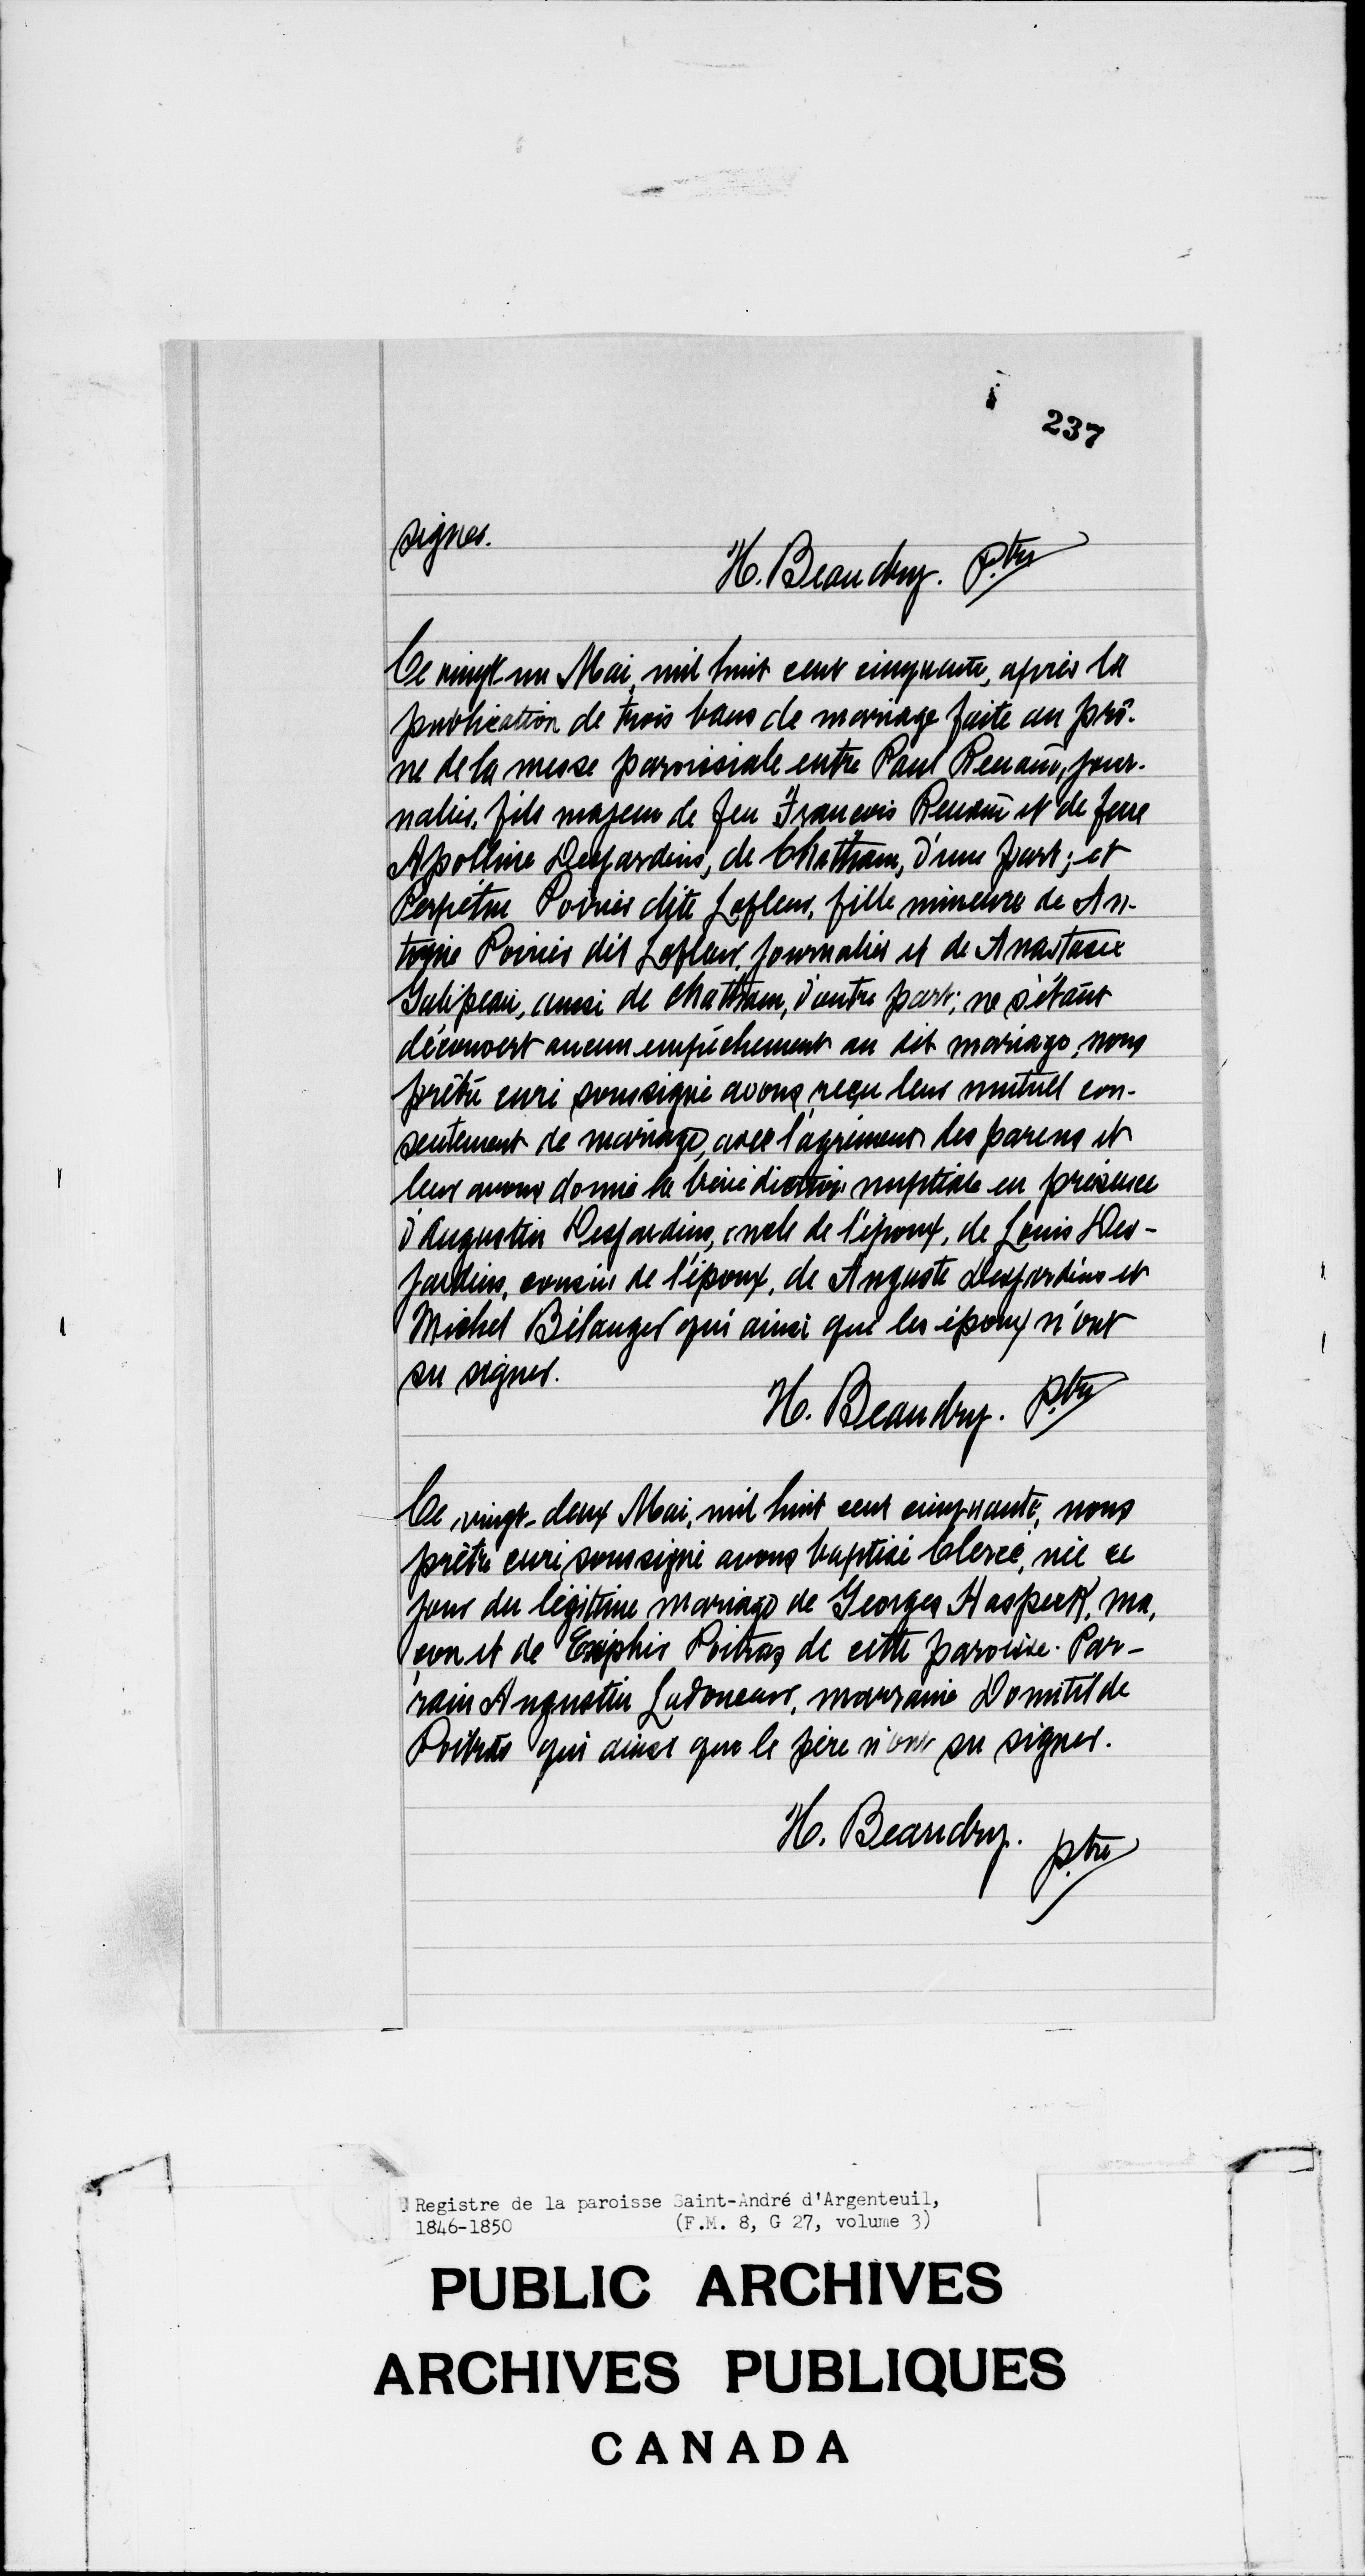 237
signer.
H. Beaudry. Ptre
Ce vingt un Mai, mil huit cent cinquante, après la
publication de trois bans de mariage faite au prô-
ne de la messe paroissiale entre Paul Renaud, jour-
nalier, fils majeur de feu François Renaud et de feue
Apolline Desjardins, de Chatham, d'une part; et
Perpétue Poirier dite Lafleur, fille mineure de An-
toine Poirier dit Lafleur, journalier et de Anastasie
Galipeau, aussi de Chatham, d'autre part; ne s'étant
découvert aucun empêchement au dit mariage, nous
prêtre curé soussigné avons reçu leur mutuel con-
sentement de mariage, avec l'agrément des parens et
leur avons donné la bénédiction nuptiale en présence
d'Augustin Desjardins, oncle de l'époux, de Louis Des-
jardins, cousin de l'époux, de Auguste Desjardins et
Michel Bélanger qui ainsi que les époux n'ont
su signer.
H. Beaudry. Ptre
Ce vingt-deux Mai, mil huit cent cinquante, nous
prêtre curé soussigné avons baptisé Clercé, née ce
jour du légitime mariage de Georges Haspeck, ma,
çon et de Poitras de cette paroisse. Par-
rain Augustin Ladouceur, marraine Domitilde
Poitras qui ainsi que le père n'ont su signer.
H. Beaudry. ptre
Registre de la paroisse Saint-André d'Argenteuil,
1846-1850 (F.M. 8, G 27, volume 3)
PUBLIC ARCHIVES
ARCHIVES PUBLIQUES
CANADA